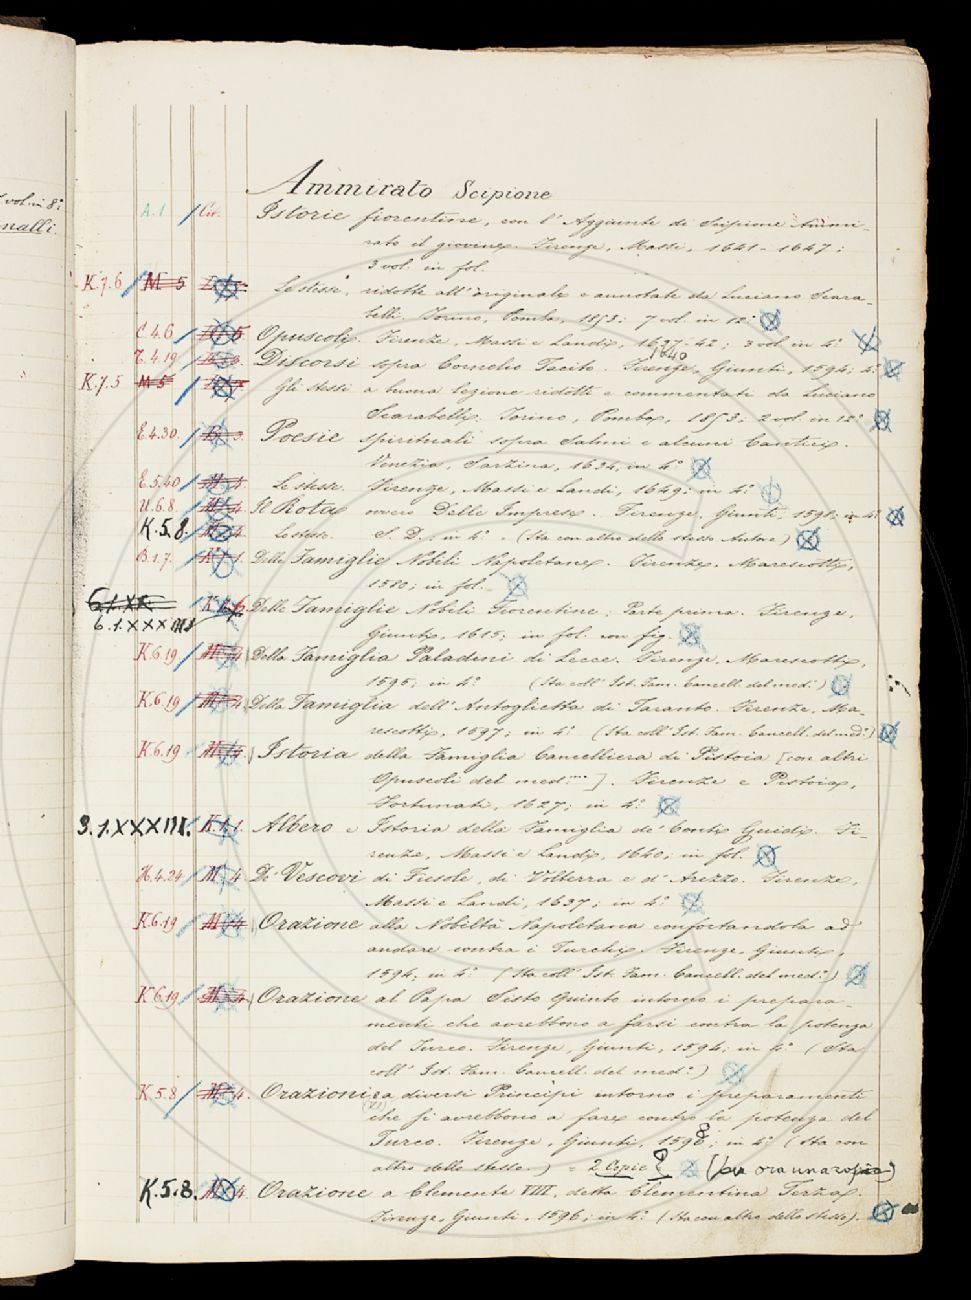 vol. in 8.°
nalli.
Ammirato Scipione
A.1 Cit. Istorie fiorentine, con l'Aggiunte di Scipione Ammi-
rato il giovine. Firenze, Massi, 1641-1647;
3 vol. in fol.
K.7.6 M 5 Le stesse, ridotte all'originale e annotate da Luciano Scara-
belli. Torino, Pomba, 1853; 7 vol. in 12.°
C.4.6 Opuscoli. Firenze, Massi e Landi, 1637-42; 3 vol. in 4.°
1640
T.4.19 Discorsi sopra Cornelio Tacito. Firenze, Giunti, 1594; 4.°
K.7.5 M 5 Gli stessi a buona lezione ridotti e commentati da Luciano
Scarabelli. Torino, Pomba, 1853; 2 vol. in 12.°
E.4.30. Poesie spirituali sopra Salmi e alcuni Cantici.
Venezia, Sarzina, 1634, in 4.°
E.5.40 Le stesse. Firenze, Massi e Landi, 1649; in 4.°
U.6.8. Il Rota ovvero Delle Imprese. Firenze, Giunti, 1598; in 4.°
K.5.8. Le stesse. S. D.; in 4.° (Sta con altro dello stesso Autore)
B.1.7. Delle Famiglie Nobili Napoletane. Firenze, Marescotti,
1580; in fol.
6.1.XX Delle Famiglie Nobili Fiorentine; Parte prima. Firenze,
6.1.XXXIII
Giunti, 1615; in fol. con fig.
K.6.19 Della Famiglia Paladini di Lecce. Firenze, Marescotti,
1595; in 4.° (Sta coll'Ist. Fam. Cancell. del med.°)
K.6.19 Della Famiglia dell'Antoglietta di Taranto. Firenze, Ma-
rescotti, 1597; in 4.° (Sta coll'Ist. Fam. Cancell. del med.°)
K.6.19 Istoria della Famiglia Cancelliera di Pistoia [con altri
Opuscoli del med.mo]. Firenze e Pistoia,
Fortunati, 1627; in 4.°
3.1.XXXIII. K.1.1. Albero e Istoria della Famiglia de' Conti Guidi. Fi-
renze, Massi e Landi, 1640; in fol.
H.4.24 M 4 De' Vescovi di Fiesole, di Volterra e d'Arezzo. Firenze,
Massi e Landi, 1637; in 4.°
K.6.19 M 4 Orazione alla Nobiltà Napoletana confortandola ad
andare contra i Turchi. Firenze, Giunti,
1594, in 4.° (Sta coll'Ist. Fam. Cancell. del med.°)
K.6.19 Orazione al Papa Sisto Quinto intorno i prepara-
menti che avrebbono a farsi contra la potenza
del Turco. Firenze, Giunti, 1594; in 4.° (Sta
coll'Ist. Fam. Cancell. del med.°)
K.5.8 Orazioni a diversi Principi intorno i preparamenti
che si avrebbono a fare contro la potenza del
Turco. Firenze, Giunti, 1598; in 4.° (Sta con
altro dello stesso.) = 2 Copie (ora una copia)
K.5.8. Orazione a Clemente VIII, detta Clementina Terza.
Firenze, Giunti, 1596; in 4.° (Sta con altro dello stesso).